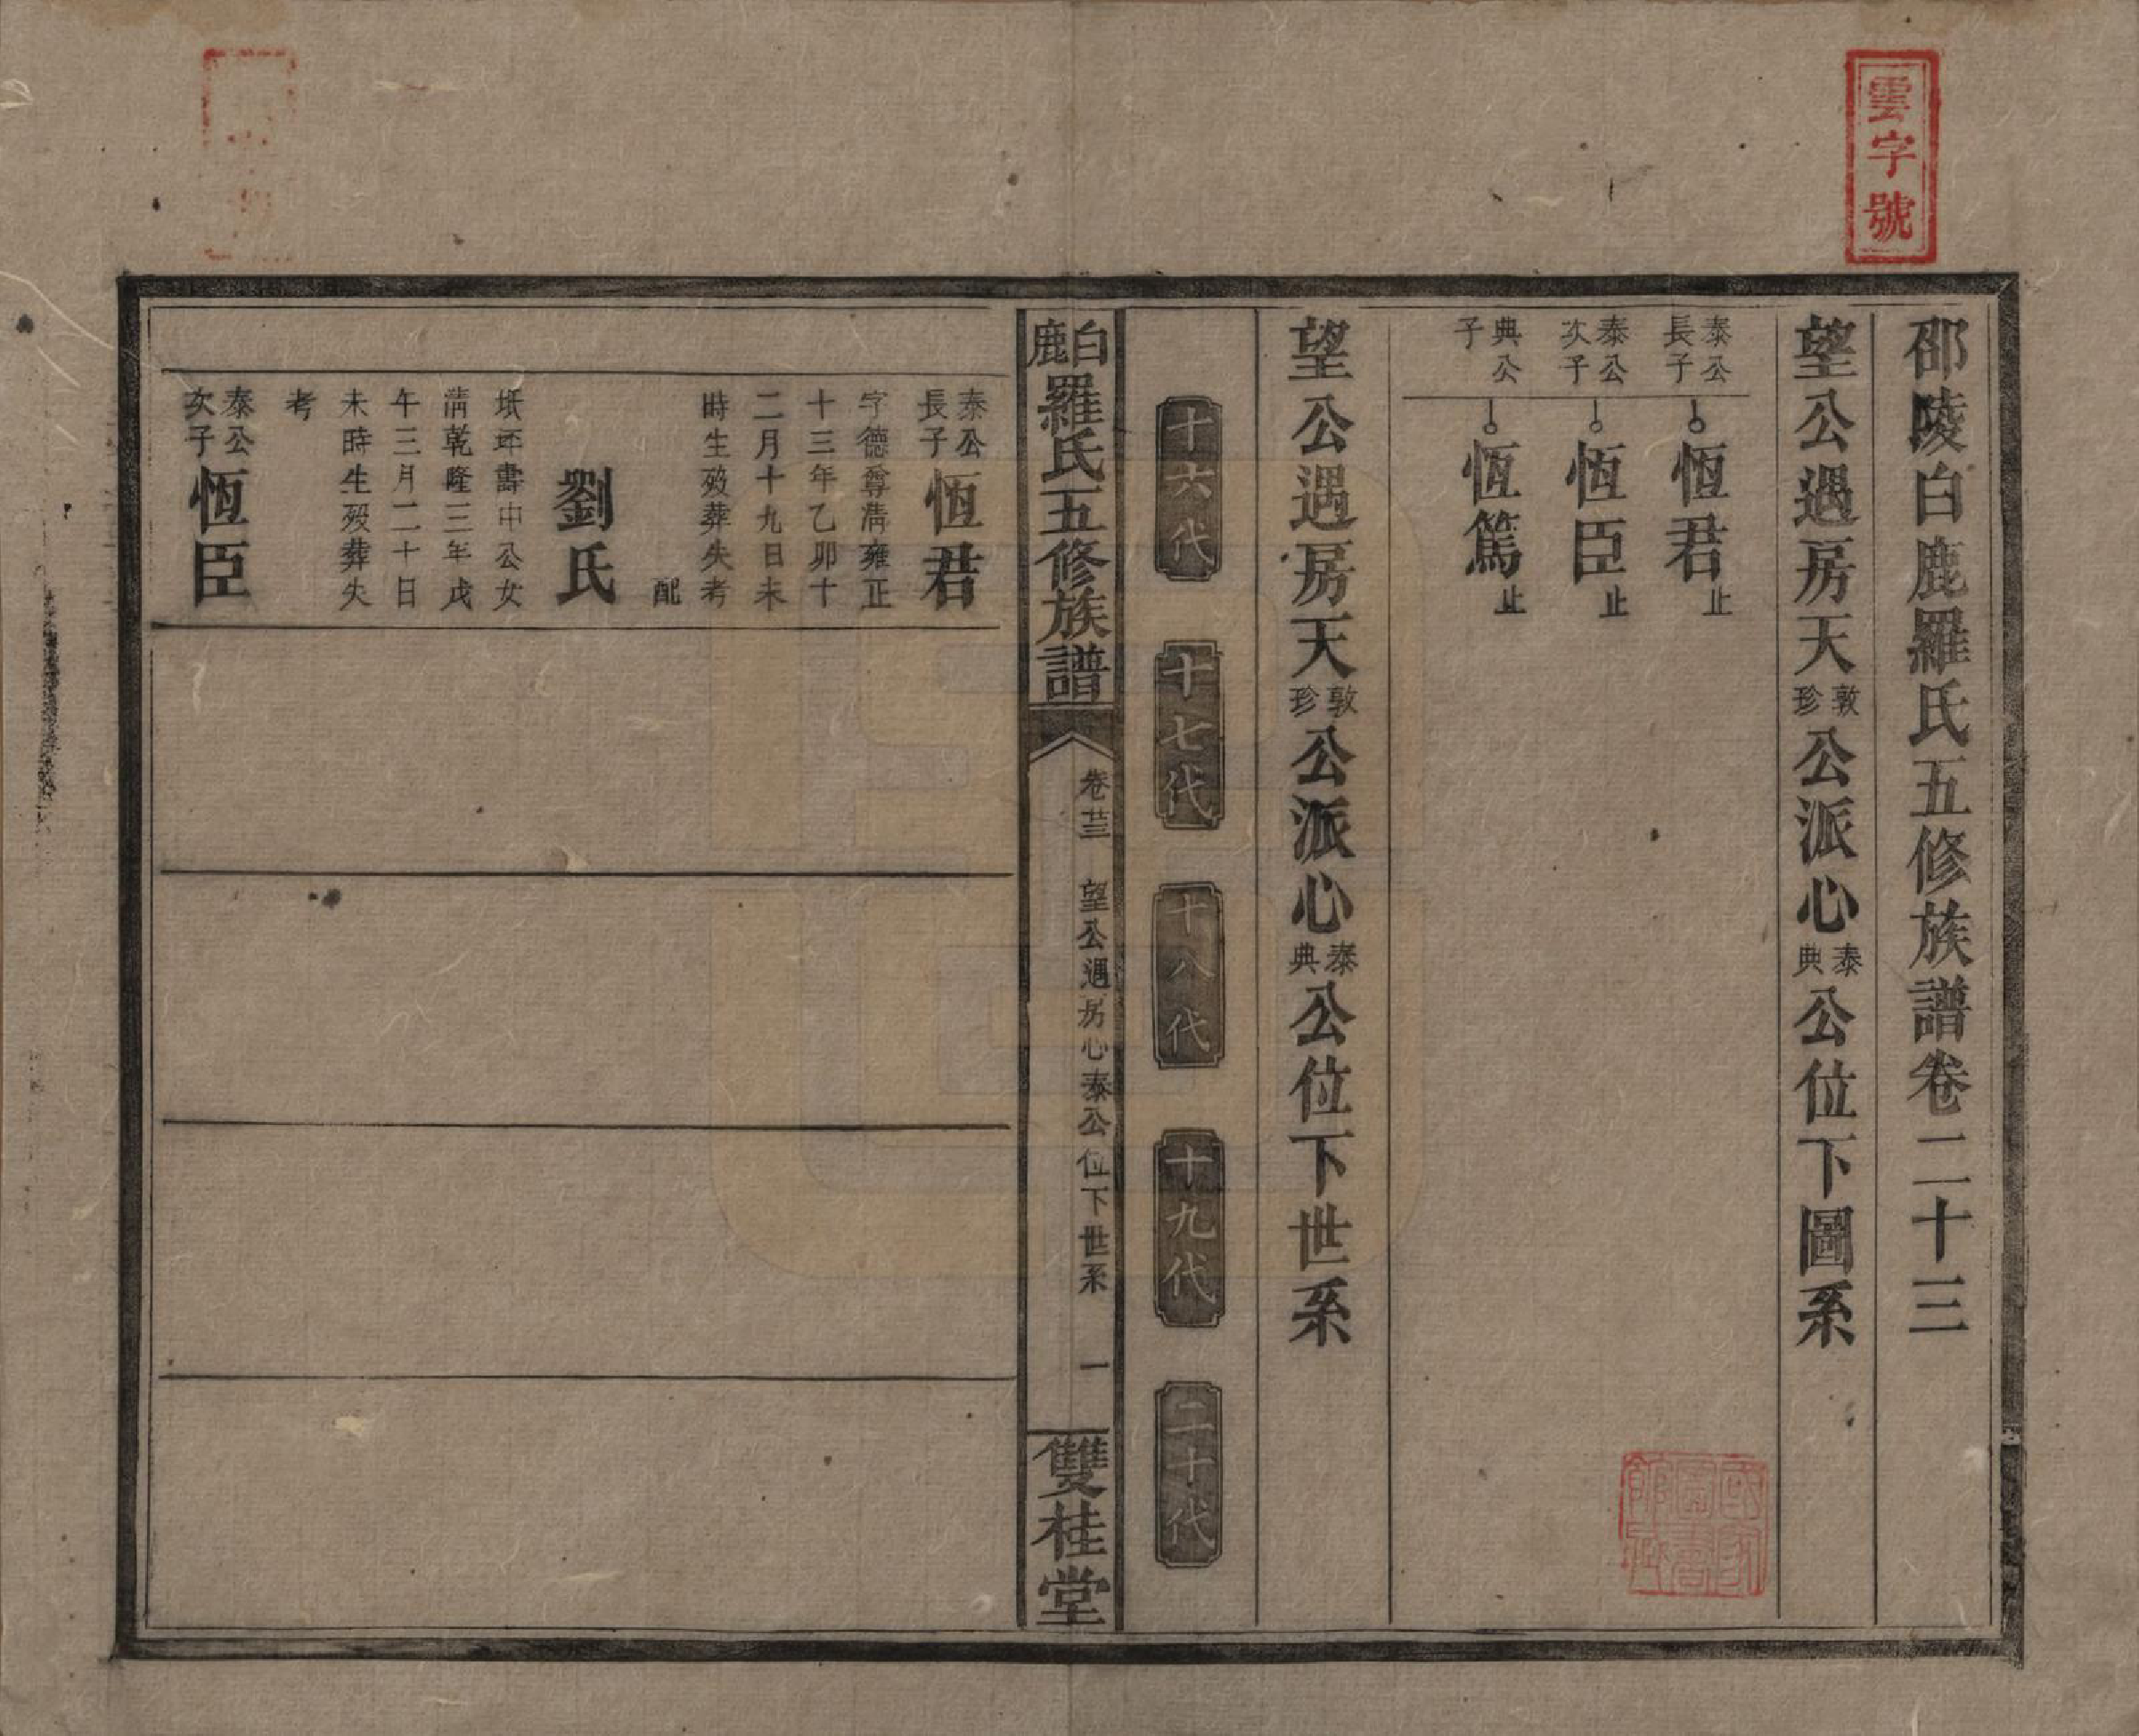 雲字號
邵陵白鹿羅氏五修族譜卷二十三
望公遇房天敦珍公派心泰典公位下圖系
泰公長子
恆君止
泰公次子
恆臣止
典公子
恆篤止
國家圖書館藏
望公遇房天敦珍公派心泰典公位下世系
十六代
十七代
十八代
十九代
二十代
白鹿羅氏五修族譜
卷廿三
望公遇房心泰公位下世系
一
雙桂堂
泰公長子
恆君
字德尊清雍正
十三年乙卯十
二月十九日未
時生歿葬失考
配
劉氏
坻坪壽中公女
清乾隆三年戊
午三月二十日
未時生歿葬失
考
泰公次子
恆臣